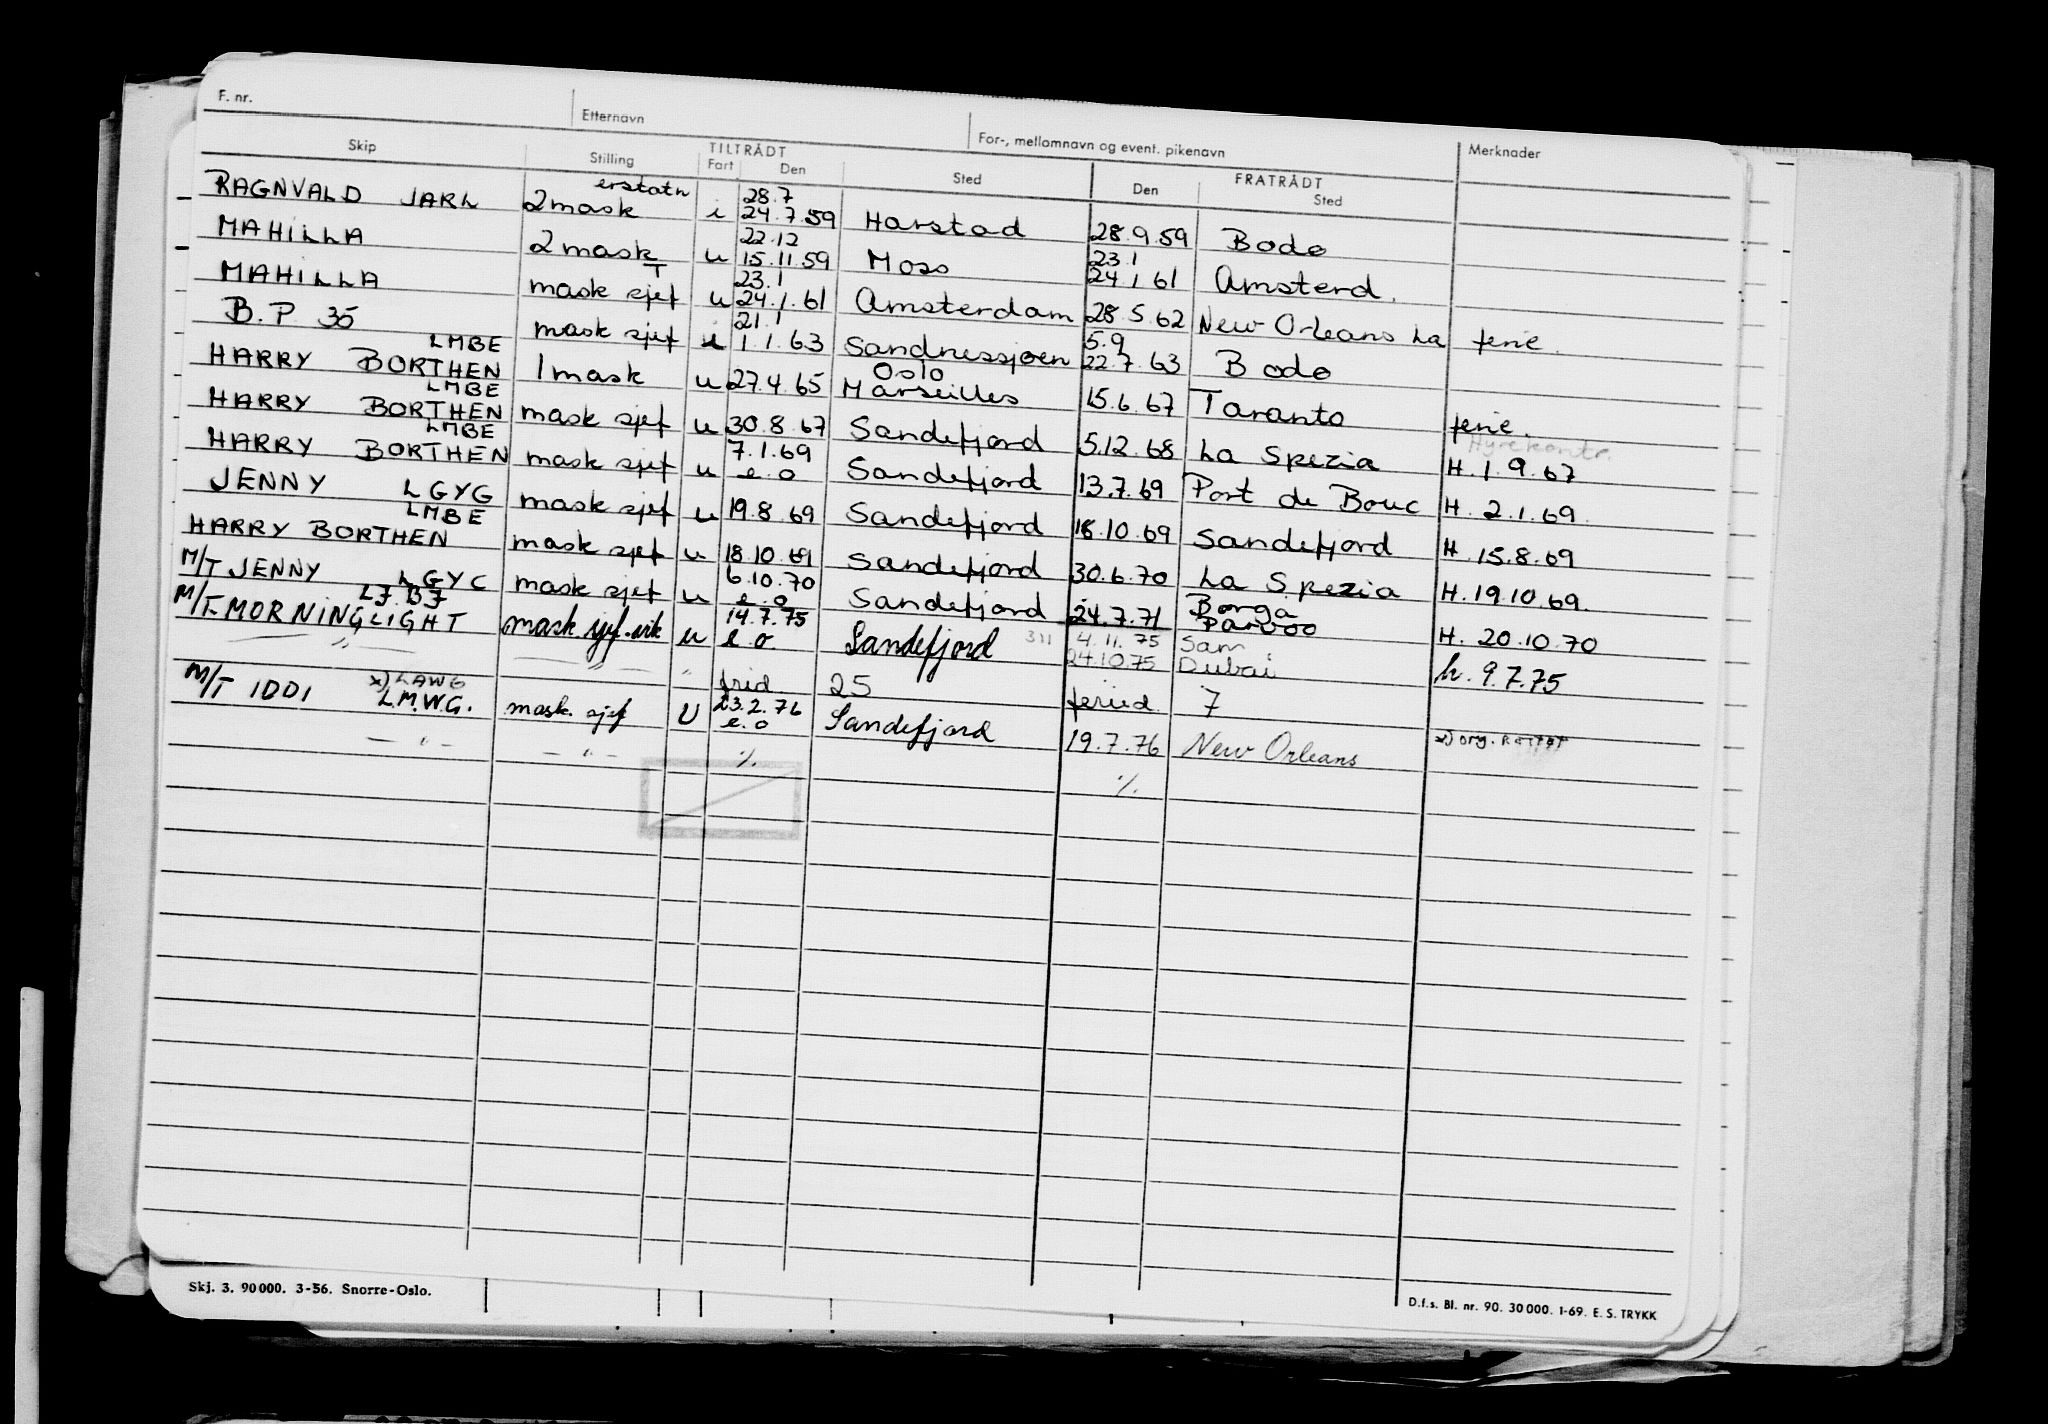 F. nr. Etternavn For-, mellomnavn og event. pikenavn Merknader
Skip Stilling TILTRÅDT Fart Den Sted FRATRÅDT Den Sted
erstatn 28.7
RAGNVALD JARL 2 mask i 24.7.59 Harstad 28.9.59 Bodø
22.12 23.1
MAHILLA 2 mask u 15.11.59 Moss 24.1.61 Amsterd.
T 23.1
MAHILLA mask sjef u 24.1.61 Amsterdam 28.5.62 New Orleans La ferie.
21.1 5.9
B.P. 35 mask sjef i 1.1.63 Sandnessjøen 22.7.63 Bodø
LMBE Oslo
HARRY BORTHEN 1 mask u 27.4.65 Marseilles 15.6.67 Taranto ferie.
LMBE Hyrekontr.
HARRY BORTHEN mask sjef u 30.8.67 Sandefjord 5.12.68 La Spezia H. 1.9.67
LMBE 7.1.69
HARRY BORTHEN mask sjef u e.o Sandefjord 13.7.69 Port de Bouc H. 2.1.69.
JENNY LGYG mask sjef u 19.8.69 Sandefjord 18.10.69 Sandefjord H. 15.8.69
LMBE
HARRY BORTHEN mask sjef u 18.10.69 Sandefjord 30.6.70 La Spezia H. 19.10.69.
6.10.70 Borga
M/T JENNY LGYC mask sjef u e.o Sandefjord 24.7.71 Parvoo H. 20.10.70
LJBJ 14.7.75 4.11.75 Sam
M/T. MORNINGLIGHT mask sjef.vik u e.o. Sandefjord 311 24.10.75 Dubai h. 9.7.75
— " — — " — " frid 25 feried 7
x) LAWG 23.2.76
M/T IDDI L.M.W.G. mask. sjef U e.o Sandefjord 19.7.76 New Orleans x) org. Rettet
— " — — " — ./. ./.
Skj. 3. 90000. 3-56. Snorre-Oslo. D.f.s. Bl. nr. 90. 30 000. 1-69. E. S. TRYKK